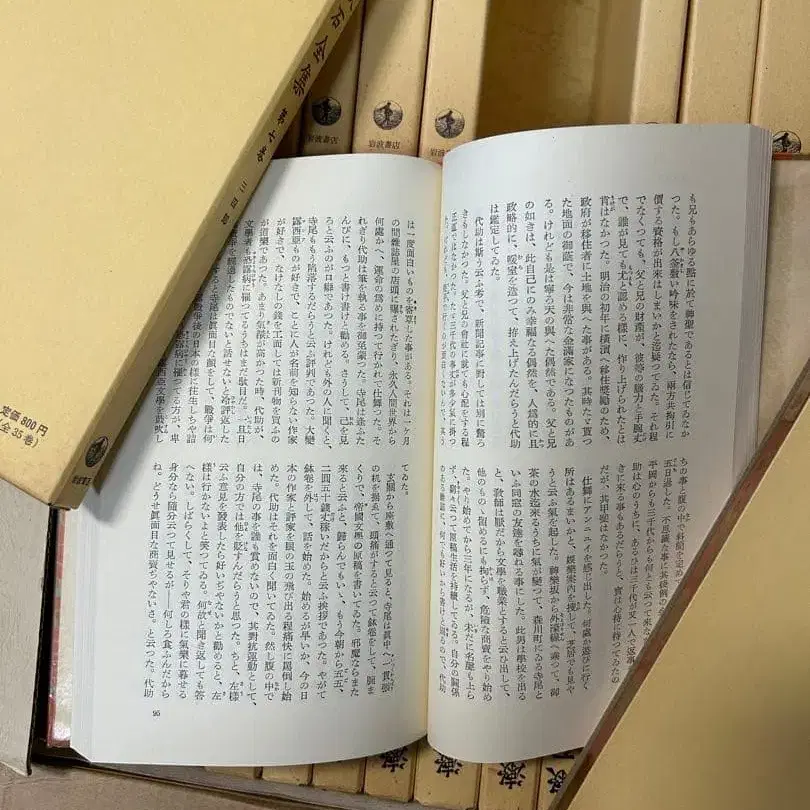 漱石全集 第七卷 三四郎
定價 800円
(全35巻)
岩波書店
岩波書店
岩波書店
も兄もあらゆる點に於て神聖であるとは信じてゐなか
つた。もし八釜敷い吟味をされたなら、兩方共拘引に
價する資格が出來はしまいかと迄疑つてゐた。それ程
でなくつても、父と兄の財產が、彼等の腦力と手腕丈
で、誰が見ても尤と認める樣に、作り上げられたとは
肯はなかつた。明治の初年に橫濱へ移住奬勵のため、
政府が移住者に土地を與へた事がある。其時たゞ貰つ
た地面の御蔭で、今は非常な金滿家になつたものがあ
る。けれども是は寧ろ天の與へた偶然である。父と兄
の如きは、此自己にのみ幸福なる偶然を、人爲的に且
政略的に、暖室を造つて、拵え上げたんだらうと代助
は鑑定してゐた。
代助は斯う云ふ考で、新聞記事に對しては別に驚ろ
きもしなかつた。父と兄の會社に就ても心配をする程
正直ではなかつた。たゞ三千代の事丈が多少氣に掛つ
た。けれども、徒手で行くのが面白くないんで、其う
ちの事と腹の中で料簡を定めて
五日過した。不思議な事に其後例の
平岡からも三千代からも何とも云つて來な
助は心のうちに、あるひは三千代が又一人で返事
きに來る事もあるだらうと、實は心待に待つてゐたの
だが、其甲斐はなかつた。
仕舞にアンニユイを感じ出した。何處か遊びに行く
所はあるまいかと、娯樂案內を捜して、芝居でも見や
うと云ふ氣を起した。神樂坂から外濠線へ乘つて、御
茶の水迄來るうちに氣が變つて、森川町にゐる寺尾と
いふ同窓の友達を尋ねる事にした。此男は學校を出る
と、敎師は厭だから文學を職業とすると云ひ出して、
他のものゝ留めるにも拘らず、危險な商賣をやり始め
た。やり始めてから三年になるが、未だに名聲も上ら
ず、窮々云つて原稿生活を持續してゐる。自分の關係
のある雜誌に、何でも好いから書けと逼るので、代助
は一度面白いものを寄草した事がある。それは一ヶ月
の間雜誌屋の店頭に曝されたぎり、永久人間世界から
何處かへ、運命の爲めに持つて行かれて仕舞つた。そ
れぎり代助は筆を執る事を御免蒙つた。寺尾は逢ふた
んびに、もつと書け書けと勸める。さうして、己を見
ろと云ふのが口癖であつた。けれども外の人に聞くと、
寺尾ももう陷落するだらうと云ふ評判であつた。大變
露西亞ものが好きで、ことに人が名前を知らない作家
が好きで、なけなしの錢を工面しては新刊物を買ふの
が道樂であつた。あまり氣燄が高かつた時、代助が、
文學者も恐露病に罹つてるうちはまだ駄目だ。一旦日
露戰爭を經過したものでないと話せないと冷評返した
事がある。すると寺尾は眞面目な顏をして、戰爭は何
時でもするが、日露戰爭後の日本の樣に往生しちや詰
らんぢやないか。矢つ張り恐露病に罹つてる方が、卑
怯でも安全だ、と答へて矢つ張り露西亞文學を鼓吹し
てゐた。
玄關から座敷へ通つて見ると、寺尾は眞中へ一貫張
の机を据ゑて、頭痛がすると云つて鉢卷をして、腕ま
くりで、帝國文學の原稿を書いてゐた。邪魔ならまた
來ると云ふと、歸らんでもいゝ、もう今朝から五五、
二圓五十錢丈稼いだからと云ふ挨拶であつた。やがて
鉢卷を外して、話を始めた。始めるが早いか、今の日
本の作家と評家を眼の玉の飛び出る程痛快に罵倒し始
めた。代助はそれを面白く聞いてゐた。然し腹の中で
は、寺尾の事を誰も賞めないので、其對抗運動として、
自分の方では他を貶すんだらうと思つた。ちと、左樣
云ふ意見を發表したら好いぢやないかと勸めると、左
樣は行かないよと笑つてゐる。何故と聞き返しても答
へない。しばらくして、そりや君の樣に氣樂に暮せる
身分なら隨分云つて見せるが――何しろ食ふんだから
ね。どうせ眞面目な商賣ぢやないさ。と云つた。代助
95